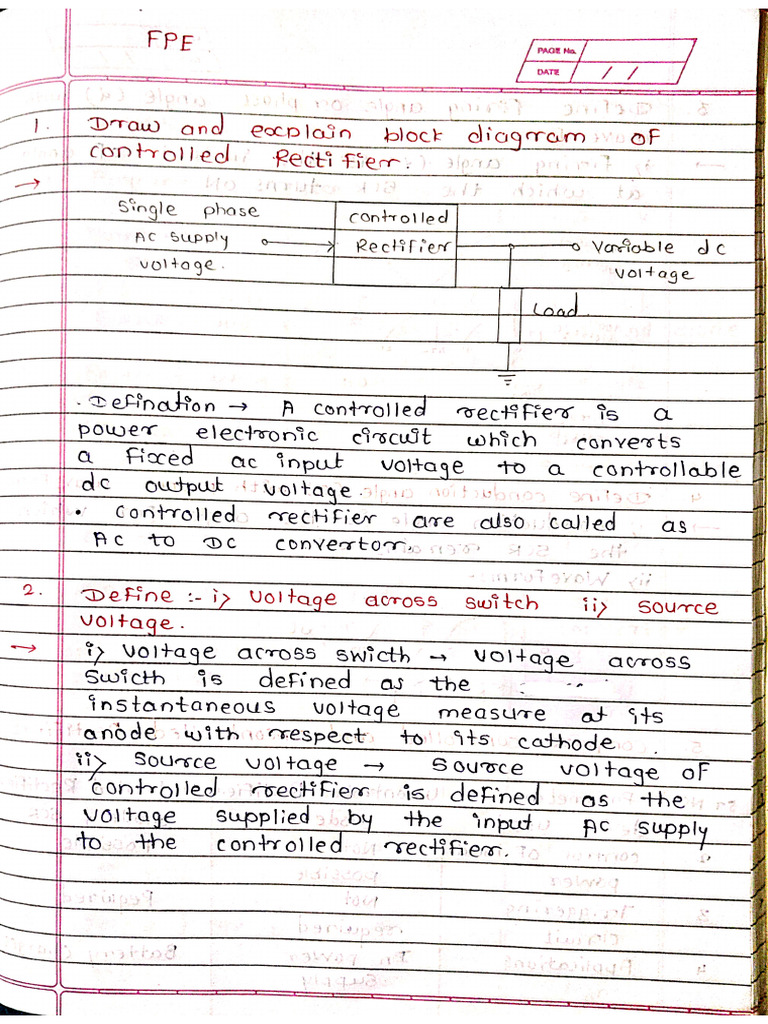 FPE
PAGE No.
DATE / /
1. Draw and explain block diagram of
controlled Rectifier.
→
Single phase
AC supply
voltage.
controlled
Rectifier
variable dc
voltage
Load.
. Defination → A controlled rectifier is a
power electronic circuit which converts
a fixed ac input voltage to a controllable
dc output voltage.
• controlled rectifier are also called as
AC to DC convertor.
2. Define :- i) voltage across switch ii) source
voltage.
→ i) voltage across swicth → voltage across
swicth is defined as the
instantaneous voltage measure at its
anode with respect to its cathode.
ii) source voltage → source voltage of
controlled rectifier is defined as the
voltage supplied by the input AC supply
to the controlled rectifier.